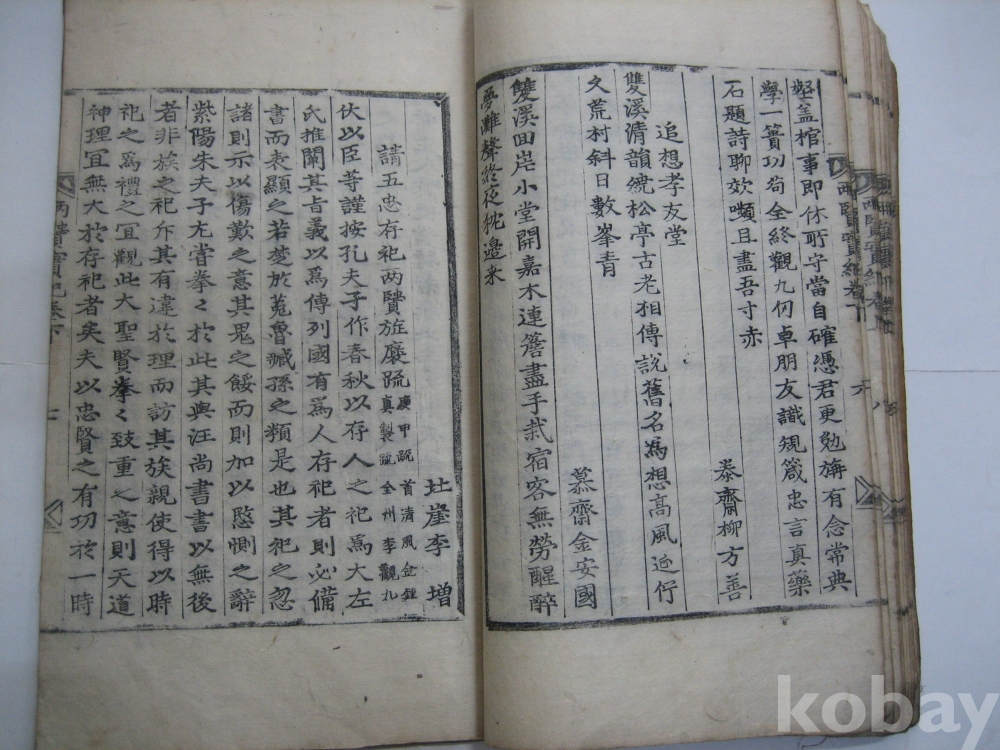 竪盖棺事即休所守當自確憑君更勉旃有念常典
學一簣功苟全終觀九仞卓朋友識規箴忠言真藥
石題詩聊效嚬且盡吾寸赤
泰齋柳方善
追想孝友堂
雙溪清韻繞松亭古老相傳說舊名為想高風近行
久荒村斜日數峯青
慕齋金安國
雙溪回岸小堂開嘉木連簷盡手栽宿客無勞醒醉
夢灘聲終夜枕邊来
兩賢實紀卷下
六
請五忠存祀两賢旌褒疏 庚甲疏首清風金鍾 真製疏全州李觀九
李增
伏以臣等謹按孔夫子作春秋以存人之祀爲大左
氏推闡其旨義以爲傳列國有爲人存祀者則必備
書而表顯之若楚於蒐魯臧孫之類是也其祀之忽
諸則示以傷歎之意其鬼之餒而則加以愍惻之辭
紫陽朱夫子尤嘗拳〻於此其與汪尚書書以無後
者非族之祀斥其有違於理而訪其族親使得以時
祀之爲禮之宜觀此大聖賢拳〻致重之意則天道
神理宜無大於存祀者矣夫以忠賢之有功於一時
两賢實紀卷下
七
kobay